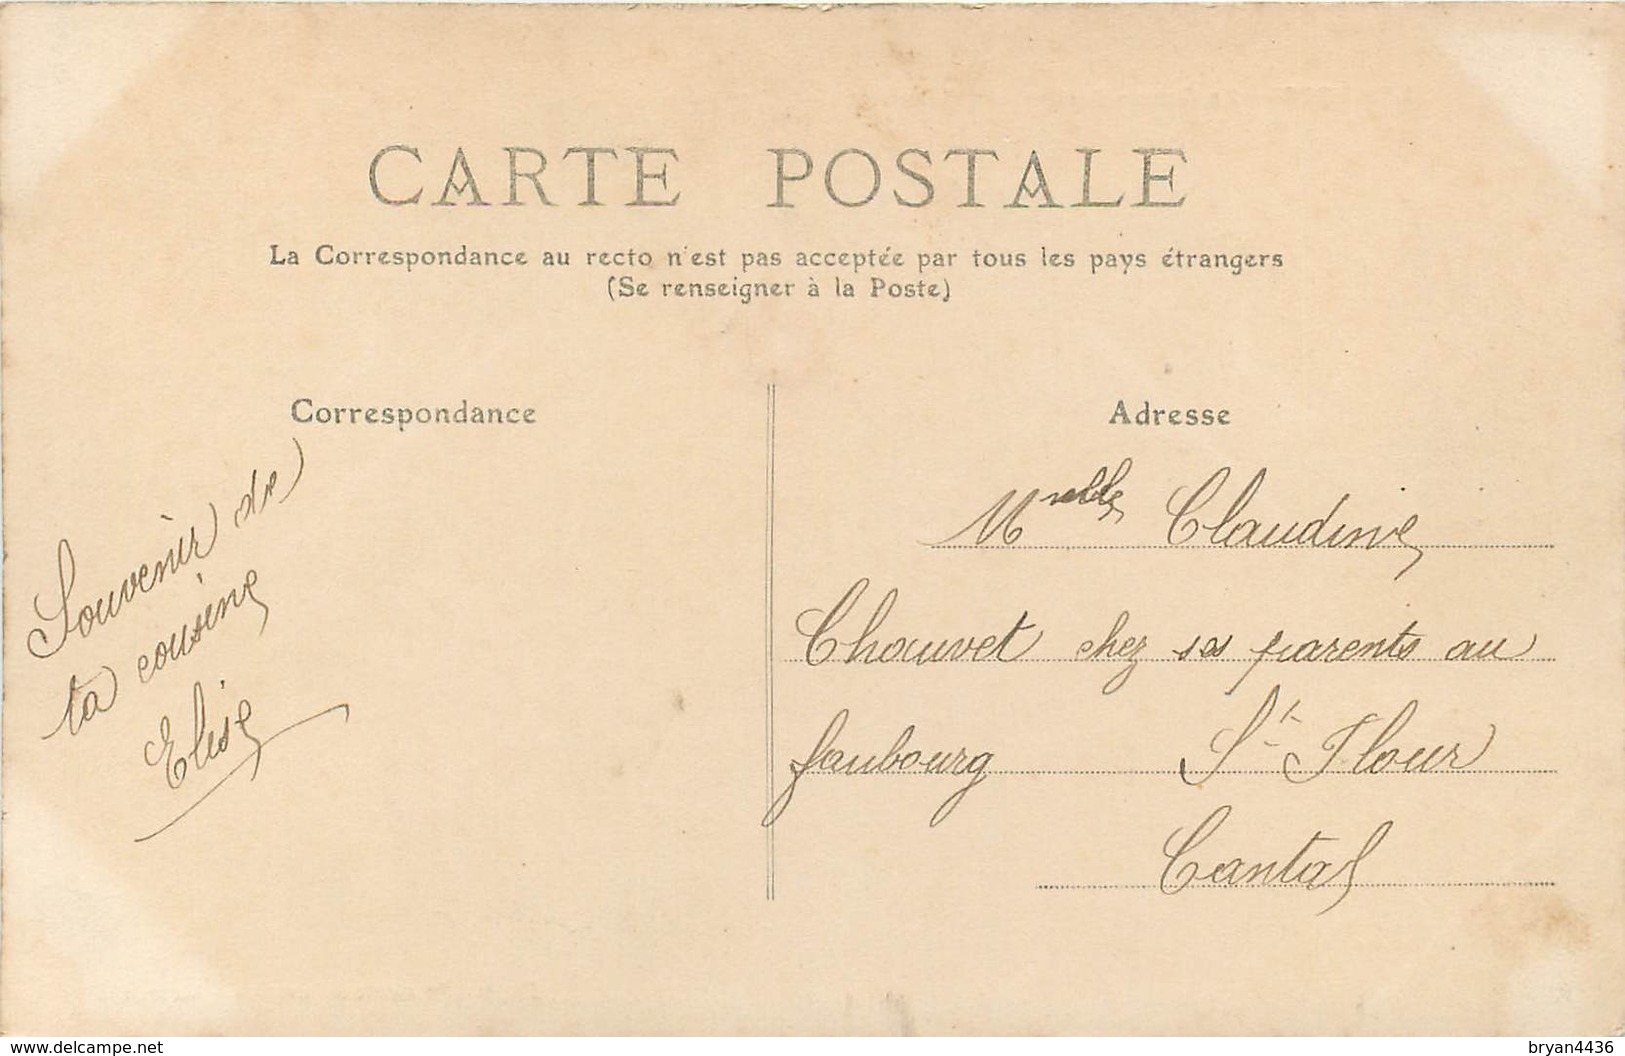 CARTE POSTALE
La Correspondance au recto n'est pas acceptée par tous les pays étrangers
(Se renseigner à la Poste)
Correspondance
Souvenir de
ta cousine
Elise
Adresse
Melle Claudine
Chauvet chez ses parents au
faubourg St Flour
Cantal
www.delcampe.net
bryan4436